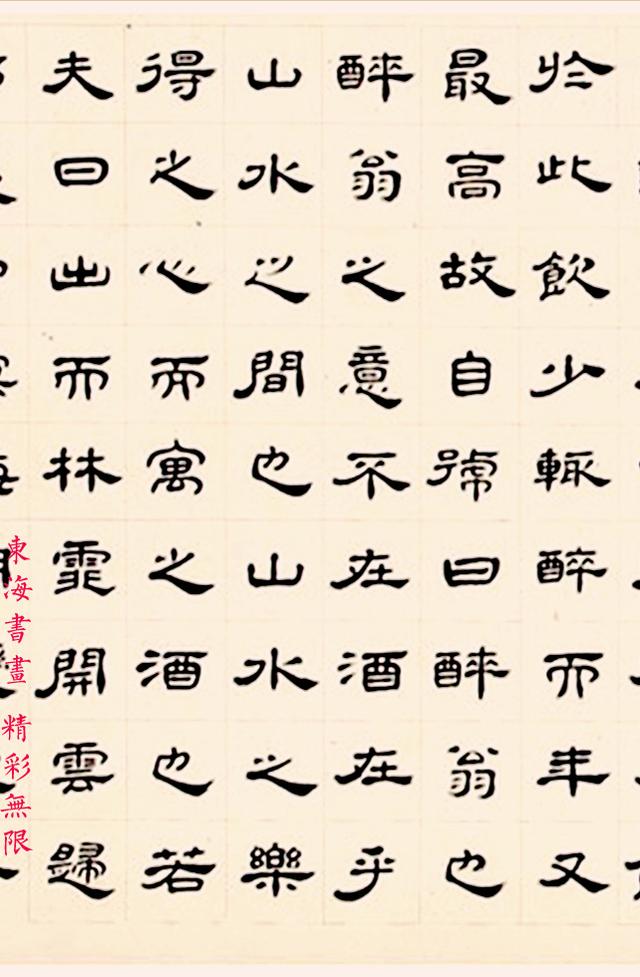 於此飲少輒醉而年又
最高故自號曰醉翁也
醉翁之意不在酒在乎
山水之間也山水之樂
得之心而寓之酒也若
夫日出而林霏開雲歸
東海書畫 精彩無限